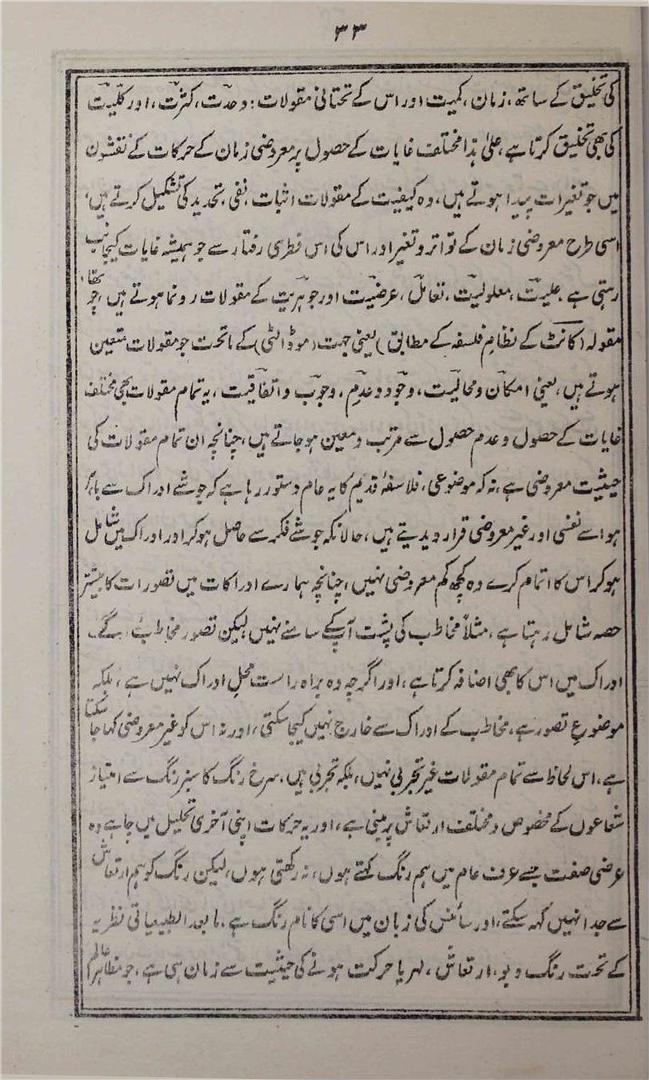 ۳۳
کی تخلیق کے ساتھ، زمان، کمیت اور اس کے تحتانی مقولات: وحدت، کثرت، اور کلیت
کی بھی تخلیق کرتا ہے، علیٰ ہذا مختلف غایات کے حصول پر معروضی زمان کے حرکات کے نقشون
میں جو تغیرات پیدا ہوتے ہیں، وہ کیفیت کے مقولات اثبات، نفی، تحدید کی تشکیل کرتے ہیں،
اسی طرح معروضی زمان کے تواتر و تغیر اور اس کی اس فطری رفتار سے جو ہمیشہ غایات کیجانب
رہتی ہے، علیت، معلولیت، تعامل، عرضیت اور جوہریت کے مقولات رونما ہوتے ہیں، چوتھا
مقولہ (کانٹ کے نظامِ فلسفہ کے مطابق) یعنی جہت (موڈالٹی) کے ماتحت جو مقولات متعین
ہوتے ہیں، یعنی امکان و محالیت، وجود و عدم، وجوب و اتفاقیت، یہ تمام مقولات بھی مختلف
غایات کے حصول و عدم حصول سے مرتب و معین ہو جاتے ہیں، چنانچہ ان تمام مقولات کی
حیثیت معروضی ہے، نہ کہ موضوعی، فلاسفۂ قدیم کا یہ عام دستور رہا ہے کہ جو شے ادراک سے باہر
ہو اسے نفسی اور غیر معروضی قرار دیدیتے ہیں، حالانکہ جو شے فکر سے حاصل ہو کر اور ادراک میں شامل
ہو کر اس کا اتمام کرے وہ کچھ کم معروضی نہیں، چنانچہ ہمارے ادراکات میں تصورات کا بیشتر
حصہ شامل رہتا ہے، مثلاً مخاطب کی پشت آپ کے سامنے نہیں لیکن تصور مخاطب کے
ادراک میں اس کا بھی اضافہ کرتا ہے، اور اگرچہ وہ براہ راست محلِ ادراک نہیں ہے، بلکہ
موضوعِ تصور ہے، مخاطب کے ادراک سے خارج نہیں کیجا سکتی، اور نہ اس کو غیر معروضی کہا جا سکتا
ہے، اس لحاظ سے تمام مقولات غیر تجربی نہیں، بلکہ تجربی ہیں، سرخ رنگ کا سبز رنگ سے امتیاز
شعاعوں کے مخصوص و مختلف ارتعاش پر مبنی ہے، اور یہ حرکات اپنی آخری تحلیل میں چاہے وہ
عرضی صفت جسے عرف عام میں ہم رنگ کہتے ہوں، نہ رکھتی ہوں، لیکن رنگ کو ہم ارتعاش
سے جدا نہیں کہہ سکتے، اور سائنس کی زبان میں اسی کا نام رنگ ہے، مابعد الطبیعیاتی نظریہ
کے تحت رنگ و بو، ارتعاش، لہر یا حرکت ہونے کی حیثیت سے زمان ہی ہے، جو مظاہر عالم